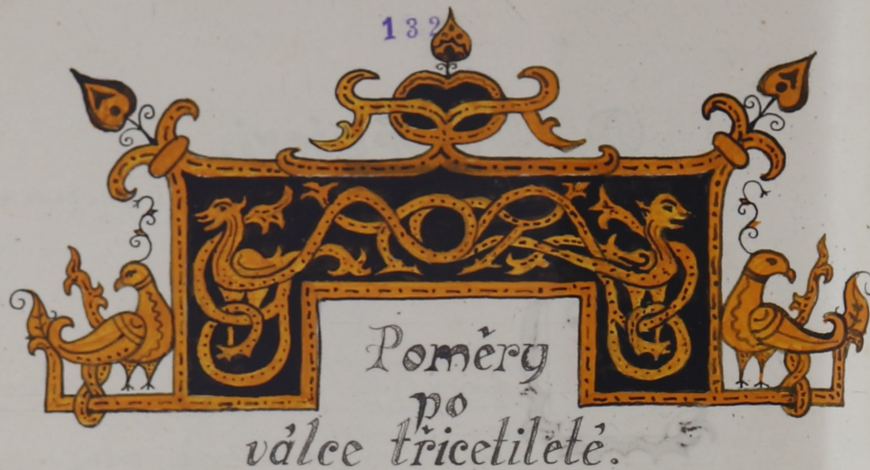 132
Poměry
po
válce třicetileté.